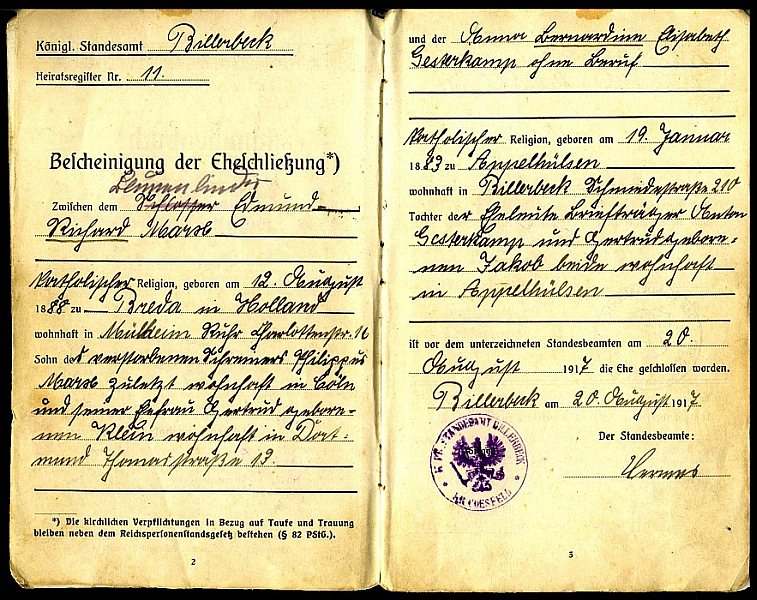 Königl. Standesamt Billerbeck
Heiratsregister Nr. 11.
Bescheinigung der Eheschließung*)
Zwischen dem Schlosser Edmund
Richard
Katholischer Religion, geboren am 12. August
1888 zu Breda in Holland
wohnhaft in Mülheim Ruhr Charlottenstr. 16
Sohn des verstorbenen Schreiners Philippus
zuletzt wohnhaft in Cöln
und seiner Ehefrau Gertrud gebore-
nen Klein wohnhaft in Dort-
mund Thomasstraße 13.
*) Die kirchlichen Verpflichtungen in Bezug auf Taufe und Trauung
bleiben neben dem Reichspersonenstandsgesetz bestehen (§ 82 PStG.).
2
und der Anna Bernardine Elisabeth
Gesterkamp ohne Beruf
Katholischer Religion, geboren am 19. Januar
1883 zu Appelhülsen
wohnhaft in Billerbeck Schmiedestraße 210
Tochter der Eheleute Briefträger Anton
Gesterkamp und Gertrud gebore-
nen Jakob beide wohnhaft
in Appelhülsen
ist vor dem unterzeichneten Standesbeamten am 20.
August 1917 die Ehe geschlossen worden.
Billerbeck am 20. August 1917
Der Standesbeamte:
Hermes
K. PR. STANDESAMT BILLERBECK
KR. COESFELD
3